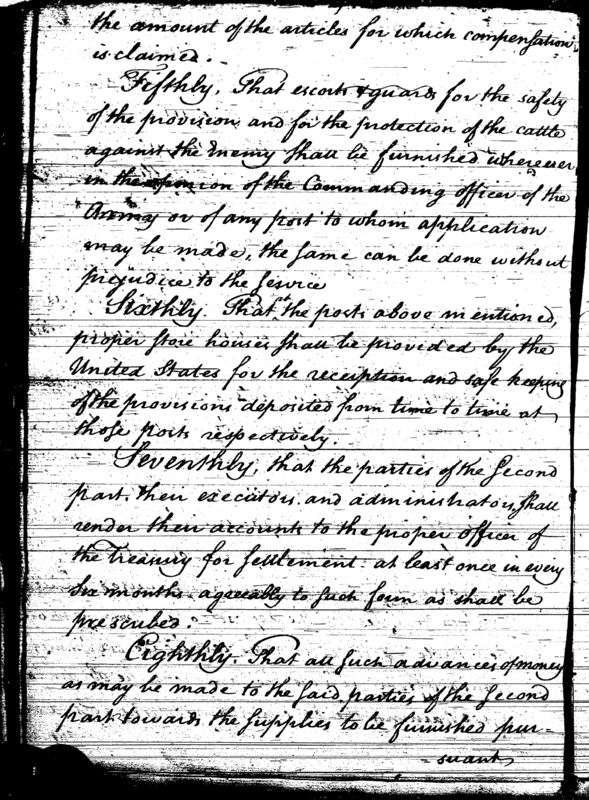 the amount of the articles for which compensation
is claimed.
Fifthly, That escorts & guards for the safety
of the provision and for the protection of the cattle
against the Enemy shall be furnished wherever,
in the opinion of the Commanding officer of the
Army or of any post to whom application
may be made, the same can be done without
prejudice to the service
Sixthly. That at the posts above mentioned,
proper store houses shall be provided by the
United States for the reception and safe keeping
of the provisions deposited from time to time at
those posts respectively.
Seventhly, that the parties of the second
part, their executors and administrators, shall
render their accounts to the proper officer of
the Treasury for settlement at least once in every
six months agreeably to such form as shall be
prescribed.
Eighthly. That all such advances of money
as may be made to the said parties of the second
part towards the supplies to be furnished pur-
suant